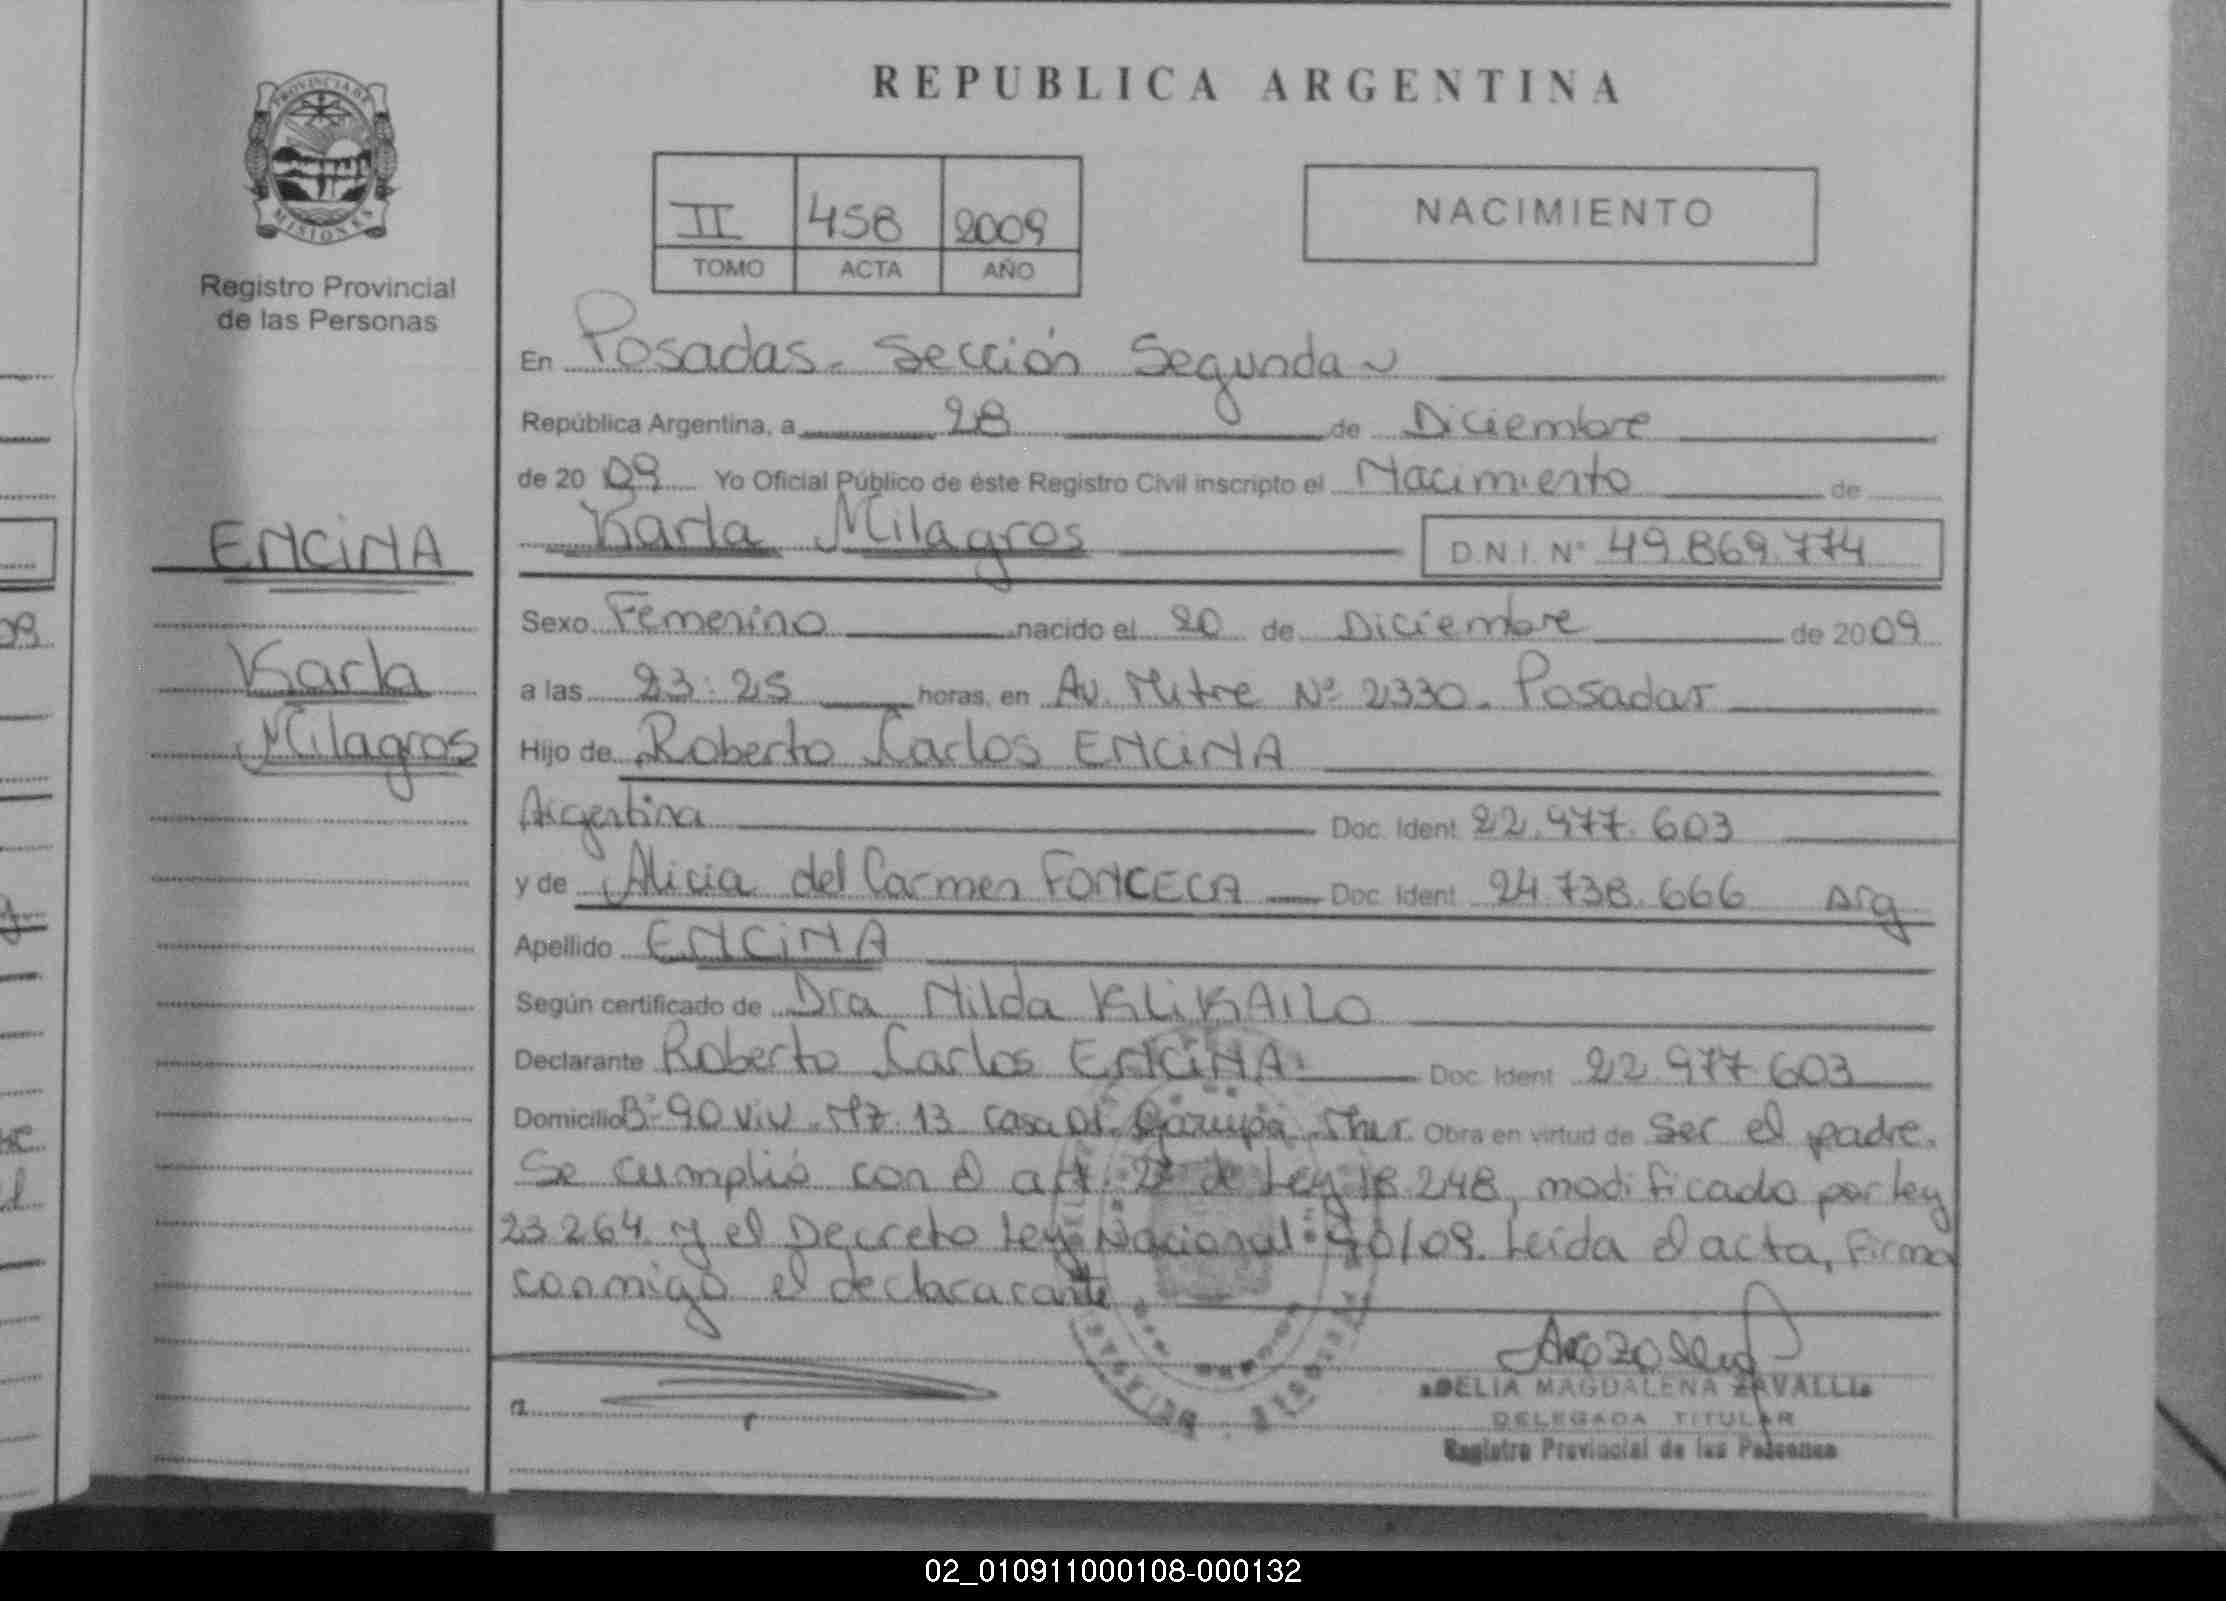 REPUBLICA ARGENTINA
PROVINCIA DE
MISIONES
Registro Provincial
de las Personas
II 458 2009
TOMO ACTA AÑO
NACIMIENTO
En Posadas. Sección Segunda
República Argentina, a 28 de Diciembre
de 20 09 Yo Oficial Público de éste Registro Civil inscripto el Nacimiento de
Karla Milagros D.N.I. Nº 49.869.774
ENCINA
Karla
Milagros
Sexo Femenino nacido el 20 de Diciembre de 2009
a las 23:25 horas, en Av. Mitre Nº 2330. Posadas
Hijo de Roberto Carlos ENCINA
Argentina Doc. Ident. 22.977.603
y de Alicia del Carmen FONCECA Doc. Ident. 24.738.666 Arg
Apellido ENCINA
Según certificado de Dra Nilda KLIKAILO
Declarante Roberto Carlos ENCINA Doc. Ident. 22.977.603
Domicilio Bº 90 Viv. Mz. 13 Casa Garupá Obra en virtud de Ser el padre.
Se cumplió con el art. de Ley 18.248, modificado por ley
23.264 y el Decreto Ley Nacional 90/09. Leída el acta, firma
conmigo el declaracante
DELIA MAGDALENA ZAVALLI
DELEGADA TITULAR
Registro Provincial de las Personas
02_010911000108-000132